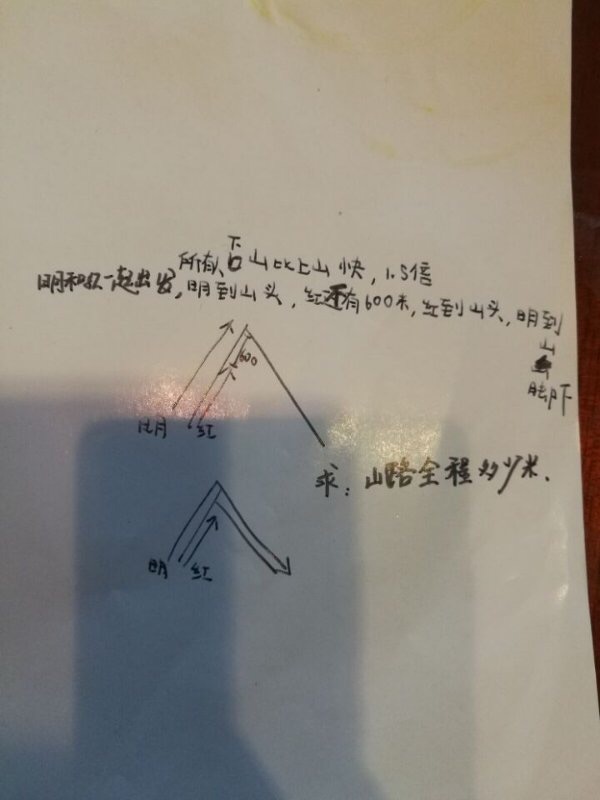 所有、下山比上山快，1.5倍
明和红一起出发，明到山头，红还有600米，红到山头，明到山脚下
600
明 红
求：山路全程多少米．
明 红